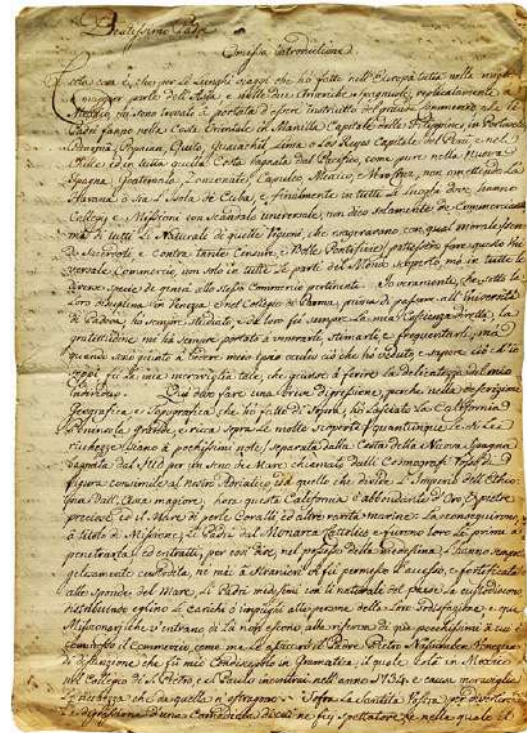 Beatissimo Padre
Omissa introductione
cosa era è, che per li lunghi viaggi che ho fatto nell'Europa tutta nella
maggior parte dell'Asia, e nelle due Americhe Spagnuole, replicatamente a
Messico, a portata d'essere instruito del grande commercio che li
Padri fanno nella Costa Orientale in Manilla Capitale delle Filippine, in Portovelo
Popaian, Quito, Lima o Los Reyes Capitale del Perù, e nel
Chile ed in tutta quella Costa bagnata dal Pacifico, come pure nella Nuova
Spagna Guatemala, Capulco, Mexico, e Vera Crux, non omettendo la
Havana o sia l'Isola de Cuba, e finalmente in tutti li luoghi dove hanno
Collegj e Missioni con scandalo universale, non dico solamente de Commercianti
mà di tutti li Naturali di quelle Regioni, che con qual morale
de Sacerdoti, e contra tante Censure, e Bolle Pontificie potessero fare questo
versale Commercio, non solo in tutte le parti del Mondo scoperto, mà in tutte le
diverse specie de generi allo stesso Commercio pertinenti. Io veramente, che sotto la
Loro disciplina in Venezia e nel Collegio de Parma, prima di passare all'Università
di Padova, hò sempre studiato, e da loro fù sempre la mia Coscienza diretta, la
gratitudine mi hà sempre portato a venerarli, stimarli, e frequentarli, mà
quando sono giunto à vedere meis ipsis oculis ciò che hò veduto, e sapere ciò ch'io
seppi fù la mia meraviglia tale, che giunse à ferire la delicatezza del mio
Individuo. Quì devo fare una breve digressione, perche nella descrizione
Geografica e Topografica che hò fatto di sopra, hò lasciato la California
Peninsola grande, e ricca sopra le molte scoperte quantunque le di Lei
ricchezze siano à pochissimi note separata dalla Costa della Nuova Spagna
bagnata dal Sud per un seno de Mare chiamato dalli Cosmografi di
figura consimile al nostro Adriatico, ed à quello che divide l'Imperio dell'Ethio
pia dall'Asia magiore, hora questa California è abbondante d'Oro, e pietre
preciose ed il Mare di perle Coralli ed altre rarità marine. La conseguirono
à titolo di Missione, li Padri dal Monarca Cattolico e furono loro li primi à
penetrarla, ed entrati, per così dire, nel possesso della medesima, l'hanno
gelosamente custodita, ne mai à stranieri vi fù permesso l'accesso, e fortificata
alle sponde del Mare, li Padri medesimi con li naturali del paese la custodiscono,
distribuendo eglino le cariche ò impieghi alle persone della loro sodisfazione e que
Missionarj che v'entrano di là non escono, alla riserva di que pochissimi à cui è
commesso il Commercio, come me lo assicurò il Padre Pietro Veneziano
di distinzione che fù mio Condiscepolo in Gramatica, il quale colà in Mexico
nel Collegio di S. Pietro, e S. Paulo incontrai nell'anno 1734 e causa maraviglia
le ricchezze che da quella n'estragono. Soffra la Santità Vostra per divertire
la digressione d'una Comediola di cui ne fui spettatore, e nella quale il